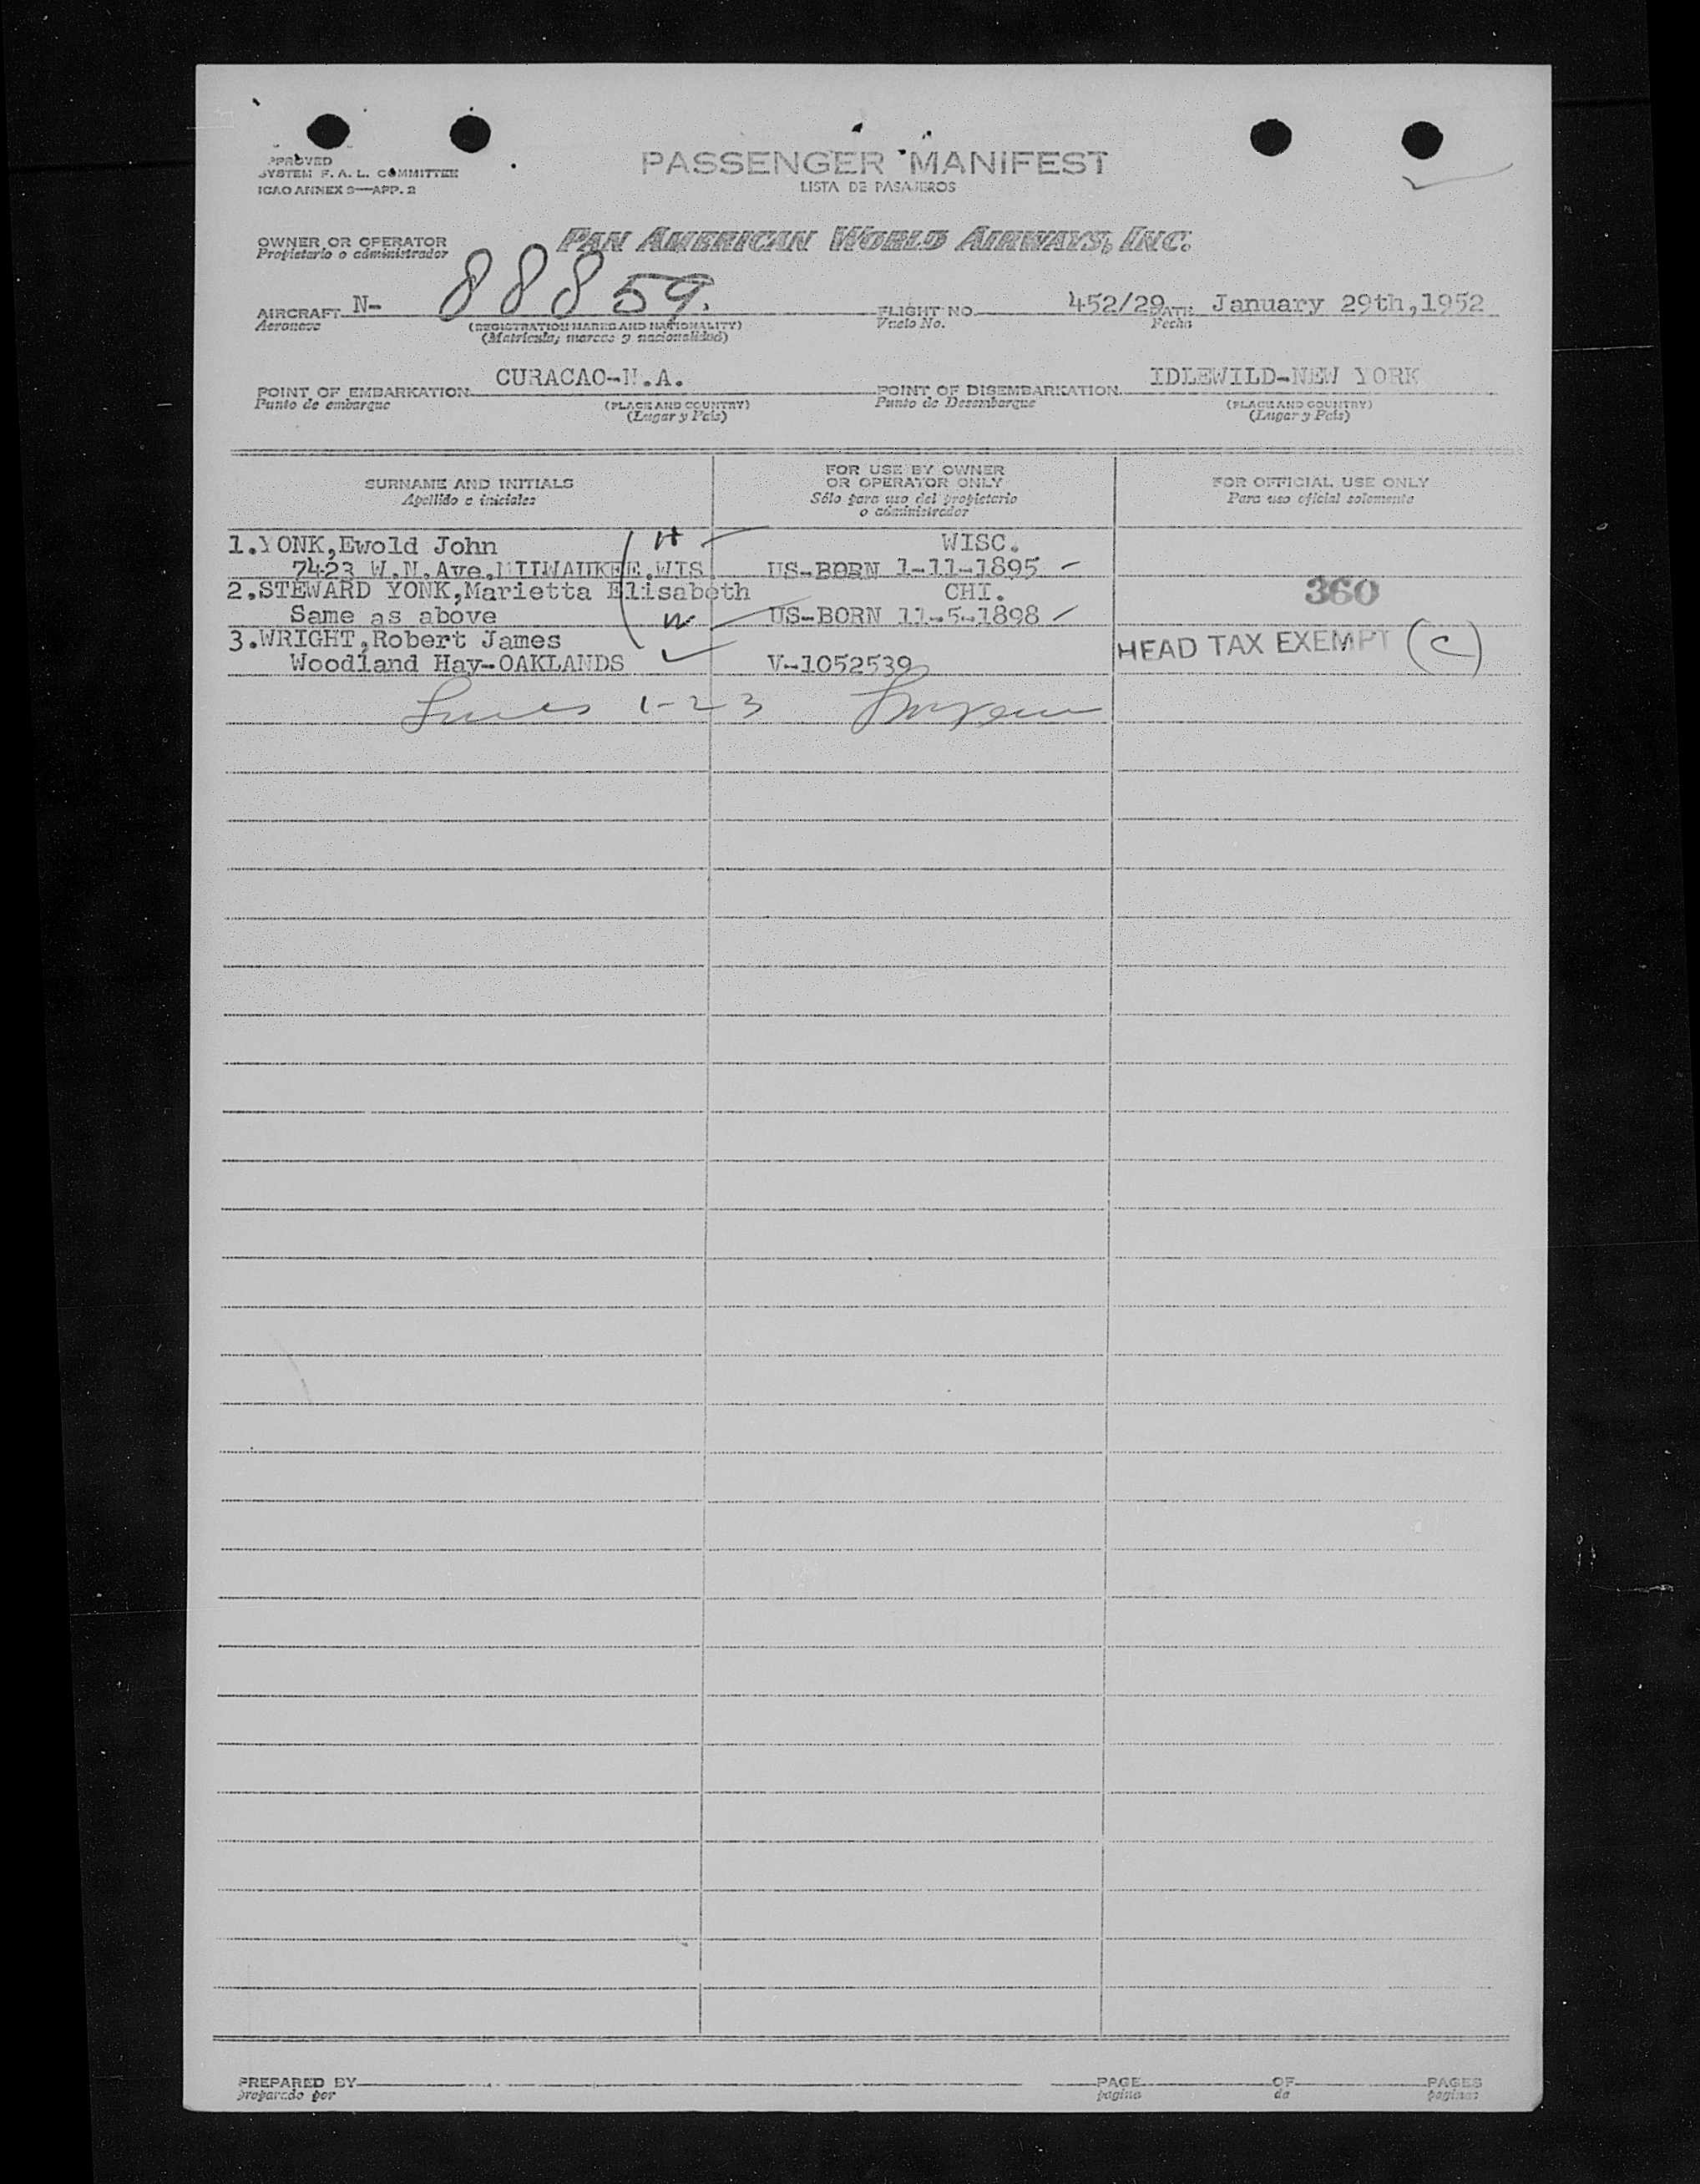 PPROVED
SYSTEM F. A. L. COMMITTEE
ICAO ANNEX 9—APP. 2
PASSENGER MANIFEST
LISTA DE PASAJEROS
OWNER OR OPERATOR
Propietario o administrador
PAN AMERICAN WORLD AIRWAYS, INC.
AIRCRAFT N- 88859. FLIGHT NO. 452/29 DATE January 29th,1952
Aeronave (REGISTRATION MARKS AND NATIONALITY) Vuelo No. Fecha
(Matrícula, marcas y nacionalidad)
POINT OF EMBARKATION CURACAO-N.A. POINT OF DISEMBARKATION IDLEWILD-NEW YORK
Punto de embarque (PLACE AND COUNTRY) Punto de Desembarque (PLACE AND COUNTRY)
(Lugar y País) (Lugar y País)
SURNAME AND INITIALS FOR USE BY OWNER OR OPERATOR ONLY FOR OFFICIAL USE ONLY
Apellido e iniciales Sólo para uso del propietario o administrador Para uso oficial solamente
1.YONK,Ewold John H WISC.
7423 W.N.Ave.MIIWAUKEE.WIS. US-BORN 1-11-1895
2.STEWARD YONK,Marietta Elisabeth CHI. 360
Same as above W US-BORN 11-5-1898
3.WRIGHT,Robert James HEAD TAX EXEMPT (C)
Woodland Hay-OAKLANDS V-1052539
1-2-3
PREPARED BY PAGE OF PAGES
preparado por página de páginas